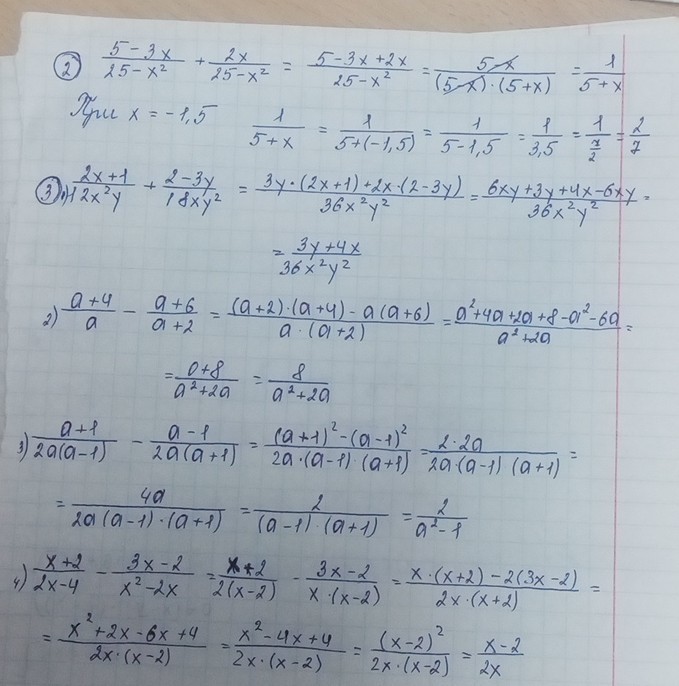 ② (5-3x)/(25-x²) + 2x/(25-x²) = (5-3x+2x)/(25-x²) = (5-x)/((5-x)·(5+x)) = 1/(5+x)
При x = -1,5 1/(5+x) = 1/(5+(-1,5)) = 1/(5-1,5) = 1/3,5 = 1/(7/2) = 2/7
③ 1) (2x+1)/(12x²y) + (2-3y)/(18xy²) = (3y·(2x+1)+2x·(2-3y))/(36x²y²) = (6xy+3y+4x-6xy)/(36x²y²) =
= (3y+4x)/(36x²y²)
2) (a+4)/a - (a+6)/(a+2) = ((a+2)·(a+4)-a(a+6))/(a·(a+2)) = (a²+4a+2a+8-a²-6a)/(a²+2a) =
= (0+8)/(a²+2a) = 8/(a²+2a)
3) (a+1)/(2a(a-1)) - (a-1)/(2a(a+1)) = ((a+1)²-(a-1)²)/(2a·(a-1)·(a+1)) = (2·2a)/(2a·(a-1)(a+1)) =
= 4a/(2a(a-1)·(a+1)) = 2/((a-1)·(a+1)) = 2/(a²-1)
4) (x+2)/(2x-4) - (3x-2)/(x²-2x) = (x+2)/(2(x-2)) - (3x-2)/(x·(x-2)) = (x·(x+2)-2(3x-2))/(2x·(x+2)) =
= (x²+2x-6x+4)/(2x·(x-2)) = (x²-4x+4)/(2x·(x-2)) = (x-2)²/(2x·(x-2)) = (x-2)/2x